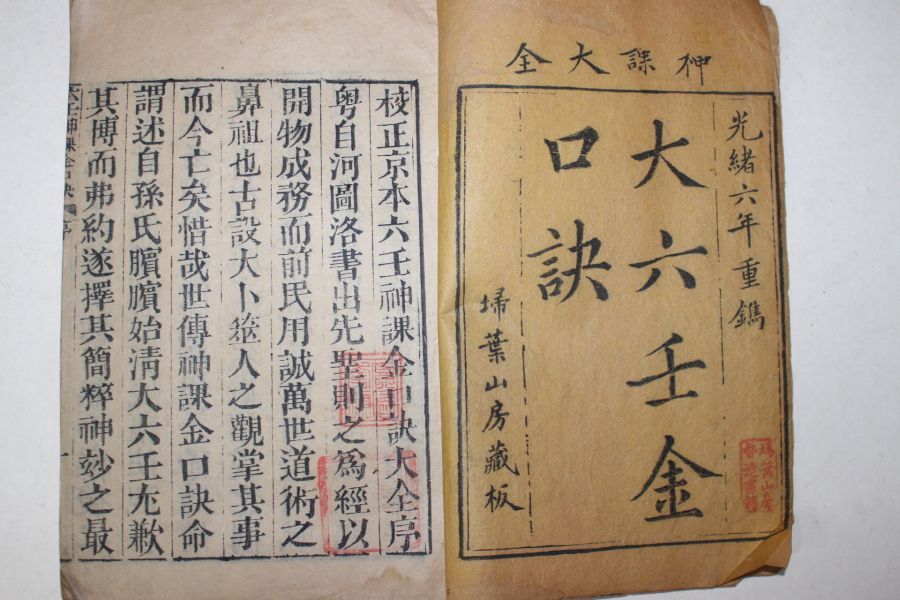 神課大全
光緒六年重鐫
大六壬金
口訣
埽葉山房藏板
校正京本六壬神課金口訣大全序
粤自河圖洛書出先聖則之為經以
開物成務而前民用誠萬世道術之
鼻祖也古設大卜簭人之觀掌其事
而今亡矣惜哉世傳神課金口訣命
謂述自孫氏臏臏始淸大六壬充歉
其博而弗約遂擇其簡粹神妙之最